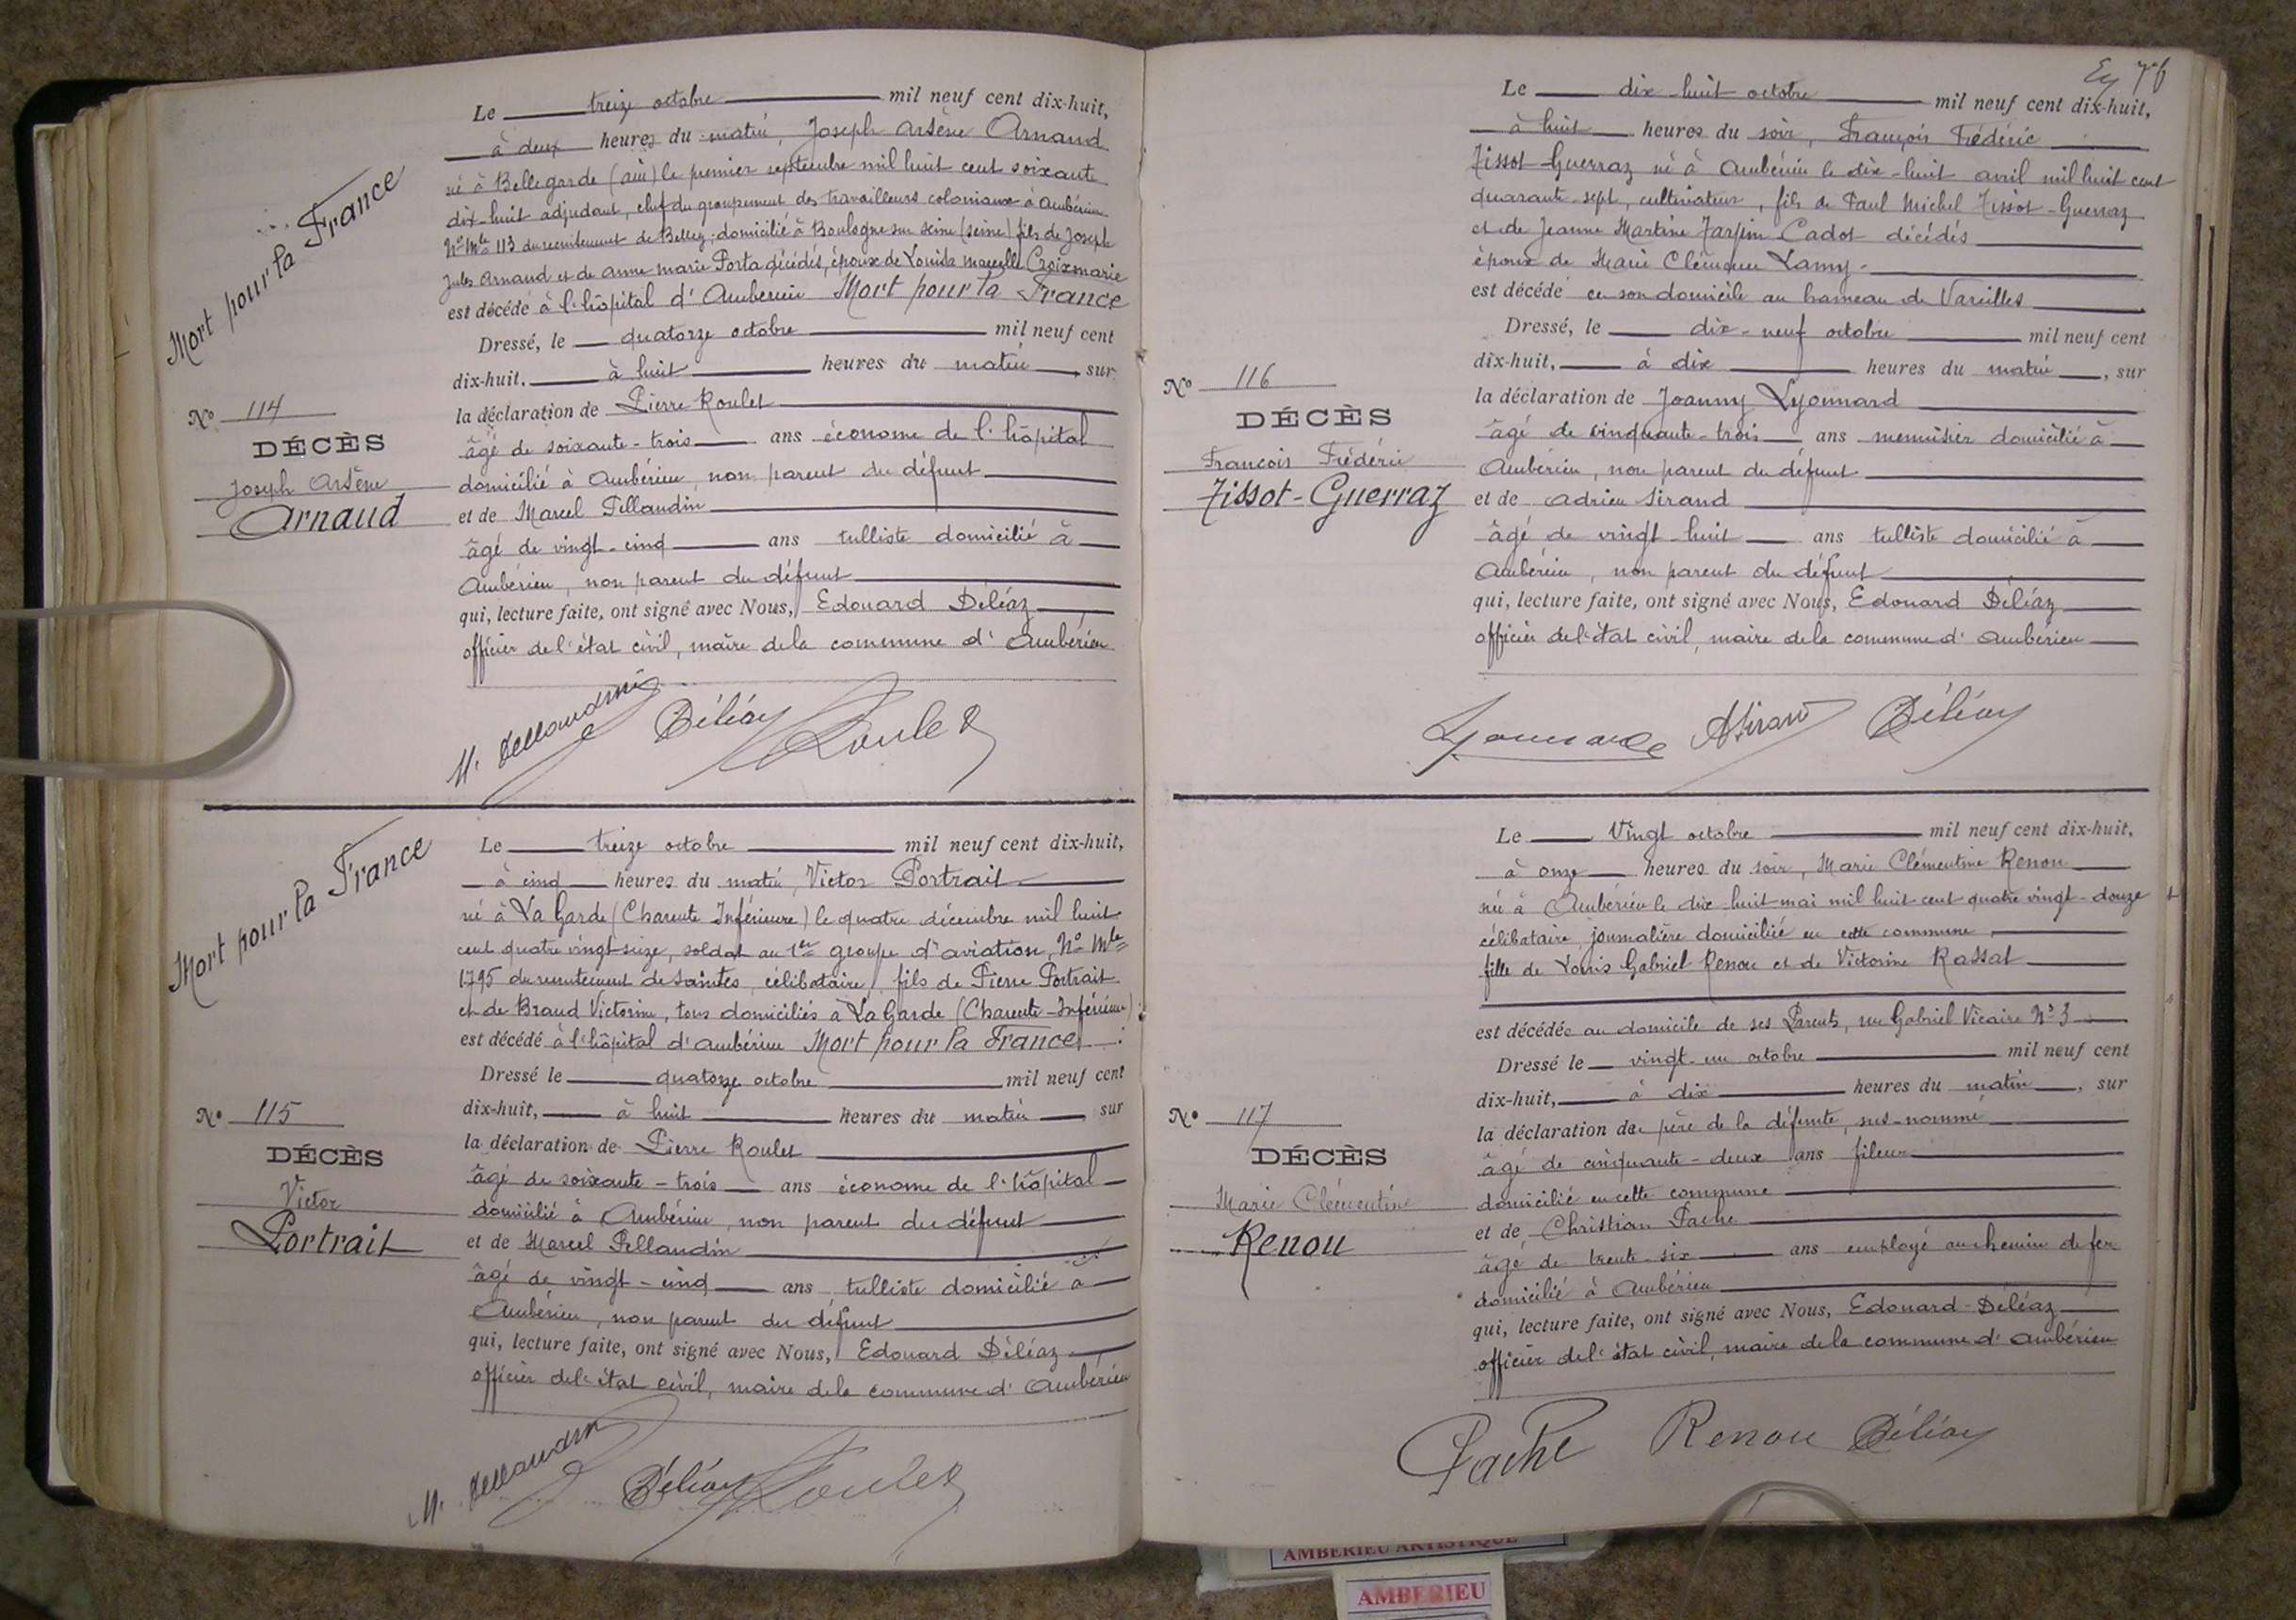 Mort pour la France
Nº 114
DÉCÈS
Joseph Arsène
Arnaud
Le treize octobre mil neuf cent dix-huit,
à deux heures du matin, Joseph Arsène Arnaud
né à Bellegarde (ain) le premier septembre mil huit cent soixante
dix-huit adjudant, chef du groupement des travailleurs coloniaux à Ambérieu
Nº Mle 113 du recrutement de Belley, domicilié à Boulogne sur seine (seine) fils de Joseph
Jules Arnaud et de anne marie Porta décédés, époux de Louida marcelle Croixmarie
est décédé à l'hôpital d'Amberieu Mort pour la France
Dressé, le quatorze octobre mil neuf cent
dix-huit, à huit heures du matin, sur
la déclaration de Pierre Roulet
âgé de soixante-trois ans économe de l'hôpital
domicilié à Ambérieu, non parent du défunt
et de Marcel Pellaudin
âgé de vingt-cinq ans tulliste domicilié à
Ambérieu, non parent du défunt
qui, lecture faite, ont signé avec Nous, Edouard Déléaz
officier de l'état civil, maire de la commune d'Ambérieu
M. Pellaudin Déléaz Roulet
Mort pour la France
Nº 115
DÉCÈS
Victor
Portrait
Le treize octobre mil neuf cent dix-huit,
à cinq heures du matin, Victor Portrait
né à La Garde (Charente Inférieure) le quatre décembre mil huit
cent quatre vingt-seize, soldat au 1er groupe d'aviation, Nº Mle
1795 du recrutement de Saintes, célibataire, fils de Pierre Portrait
et de Braud Victorine, tous domiciliés à La Garde (Charente-Inférieure)
est décédé à l'hôpital d'ambérieu Mort pour la France
Dressé le quatorze octobre mil neuf cent
dix-huit, à huit heures du matin, sur
la déclaration de Pierre Roulet
âgé de soixante-trois ans économe de l'hôpital
domicilié à Ambérieu, non parent du défunt
et de Marcel Pellaudin
âgé de vingt-cinq ans tulliste domicilié à
Ambérieu, non parent du défunt
qui, lecture faite, ont signé avec Nous, Edouard Déléaz
officier de l'état civil, maire de la commune d'Ambérieu
M. Pellaudin Déléaz Roulet
76
Nº 116
DÉCÈS
François Frédéric
Tissot-Guerraz
Le dix-huit octobre mil neuf cent dix-huit,
à huit heures du soir, François Frédéric
Tissot-Guerraz né à Ambérieu le dix-huit avril mil huit cent
quarante-sept, cultivateur, fils de Paul Michel Tissot-Guerraz
et de Jeanne Martine Tarpin Cadot décédés
époux de Marie Clémence Lamy.
est décédé en son domicile au hameau de Vareilles
Dressé, le dix-neuf octobre mil neuf cent
dix-huit, à dix heures du matin, sur
la déclaration de Joanny Lyonnard
âgé de cinquante-trois ans menuisier domicilié à
Ambérieu, non parent du défunt
et de Adrien Sirand
âgé de vingt-huit ans tulliste domicilié à
Ambérieu, non parent du défunt
qui, lecture faite, ont signé avec Nous, Edouard Déléaz
officier de l'état civil, maire de la commune d'Ambérieu
Lyonnard A Sirand Déléaz
Nº 117
DÉCÈS
Marie Clémentine
Renou
Le Vingt octobre mil neuf cent dix-huit,
à onze heures du soir, Marie Clémentine Renou
née à Ambérieu le dix-huit mai mil huit cent quatre vingt-douze
célibataire, journalière domiciliée en cette commune,
fille de Louis Gabriel Renou et de Victorine Rassat
est décédée au domicile de ses Parents, rue Gabriel Vicaire Nº 3
Dressé le vingt-un octobre mil neuf cent
dix-huit, à dix heures du matin, sur
la déclaration du père de la défunte, sus-nommé
âgé de cinquante-deux ans fileur
domicilié en cette commune
et de Christian Pache
âgé de trente-six ans employé au chemin de fer
domicilié à Ambérieu
qui, lecture faite, ont signé avec Nous, Edouard Déléaz
officier de l'état civil, maire de la commune d'Ambérieu
Pache Renou Déléaz
AMBERIEU ARTISTIQUE
AMBERIEU